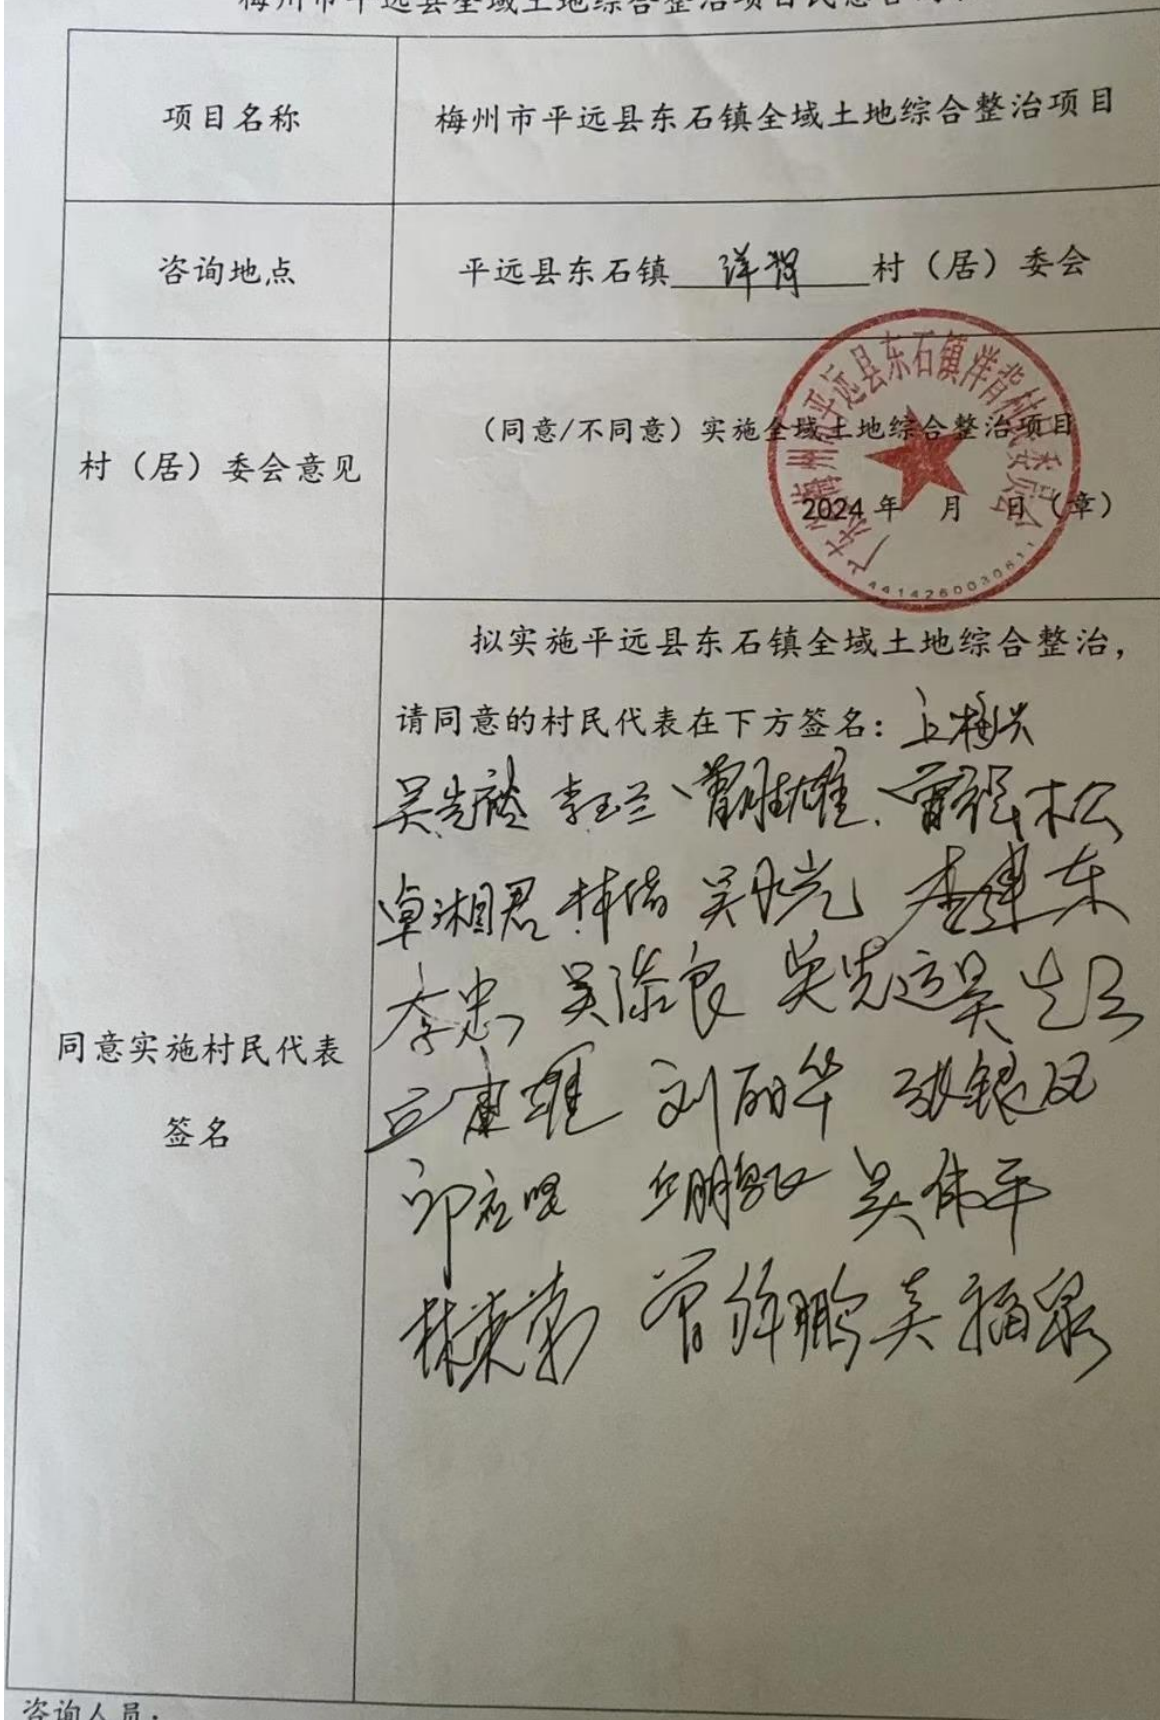 梅州市平远县全域土地综合整治项目民意咨询
项目名称
梅州市平远县东石镇全域土地综合整治项目
咨询地点
平远县东石镇 洋背 村（居）委会
村（居）委会意见
（同意/不同意）实施全域土地综合整治项目
2024年 月 日（章）
广东省梅州市平远县东石镇洋背村民委员会
4414260030811
同意实施村民代表
签名
拟实施平远县东石镇全域土地综合整治，
请同意的村民代表在下方签名：丘梅兴
吴先 李玉兰 曾胜雄、曾 松
卓湘君 林 吴 光 李建东
李忠 吴添良 吴先运 吴
丘 雄 刘丽华 张银凤
邱 丘鹏 吴伟平
林东 曾 鹏 吴福泉
咨询人员：